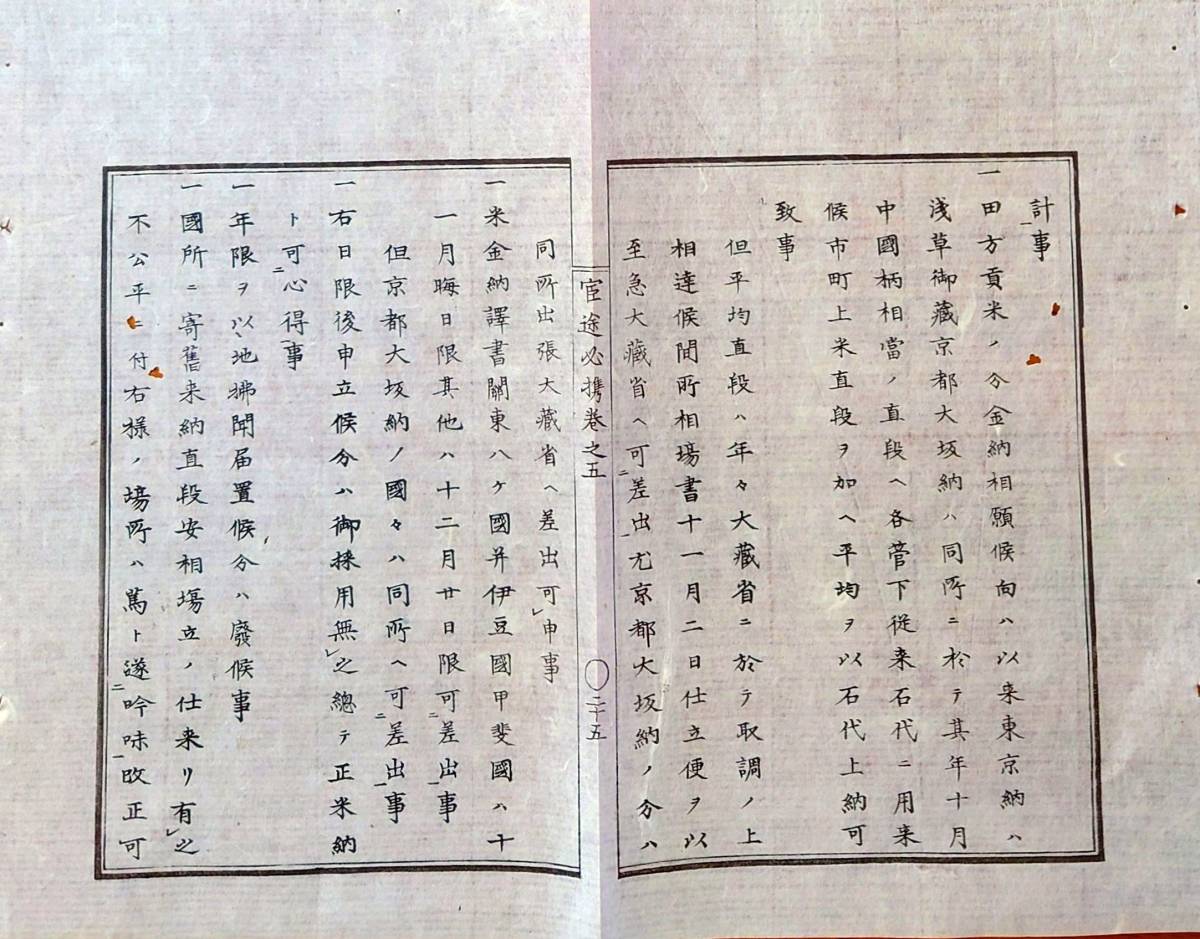 計事
一田方貢米ノ分金納相願候向ハ以来東京納ハ
淺草御藏京都大坂納ハ同所ニ於テ其年十月
中國柄相當ノ直段ヘ各菅下従来石代ニ用来
候市町上米直段ヲ加ヘ平均ヲ以石代上納可
致事
但平均直段ハ年々大藏省ニ於テ取調ノ上
相達候間所相場書十一月二日仕立便ヲ以
至急大藏省ヘ可差出尤京都大坂納ノ分ハ
宦途必携巻之五
二十五
同所出張大藏省ヘ差出可申事
一米金納譯書關東八ケ國并伊豆國甲斐國ハ十
一月晦日限其他ハ十二月廿日限可差出事
但京都大坂納ノ國々ハ同所ヘ可差出事
一右日限後申立候分ハ御採用無之總テ正米納
ト可心得事
一年限ヲ以地拂聞届置候分ハ廢候事
一國所ニ寄舊来納直段安相場立ノ仕来リ有之
不公平ニ付右様ノ場所ハ篤ト遂吟味改正可